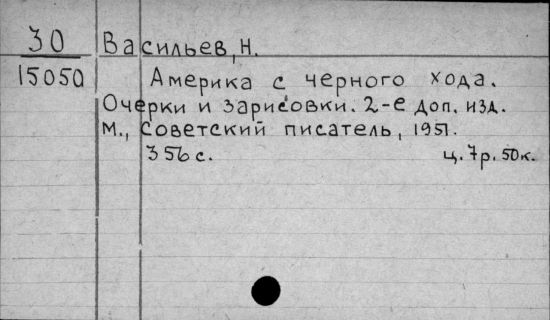 30 Васильев, Н.
15050 Америка с черного хода.
Очерки и зарисовки. 2-е доп. изд.
М., Советский писатель, 1951.
356 с. ц. 7р. 50к.